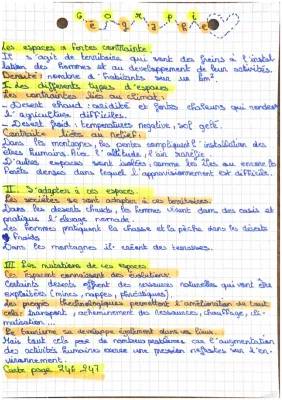 Géographie
Les espaces à fortes contrainte.
Il s'agit de territoire qui sont des freins à l'instal
lation des hommes et au developpement de leur activités.
Densité: nombre d'habitants sur un km².
I. Les différents types d'espaces.
Les contraintes liés au climat.
- Desert chaud: aridité et fortes chaleurs qui rendent
l'agriculture difficiles.
- Desert froid: temperatures negative, sol gelé.
Contrainte liées au relief:
Dans les montagnes, les pentes compliquent l'installation des
êtres humains, l'altitude, l'air raréfié
D'autres espaces sont isolés comme les îles ou encore la
forêts denses dans lequel l'approvisionnement est difficile.
II. S'adapter à ces espaces.
Les sociétés se sont adapter à ces territoires.
Dans les déserts chauds, les hommes vivent dans des oasis et
pratique l'élevage nomade.
Les hommes pratiquent la chasse et la pêche dans les déserts
froids
Dans les montagnes il créent des terrasses.
III Les mutations de ces espaces
Ces espaces connaissent des évolutions.
Certains deserts offrent des ressources naturelles qui vont être
exploitées (mines, nappes, phréatiques).
Les progrès thechnologiques permettent l'amélioration de tout
cela: transport, acheminement des ressources, chauffage, cli-
matisation...
Le tourisme se développe également dans ces lieux.
Mais tout cela pose de nombreux problèmes car l'augmentation
des activités humaines exerce une pression néfastes sur l'en-
vironnement.
Carte page 246-247